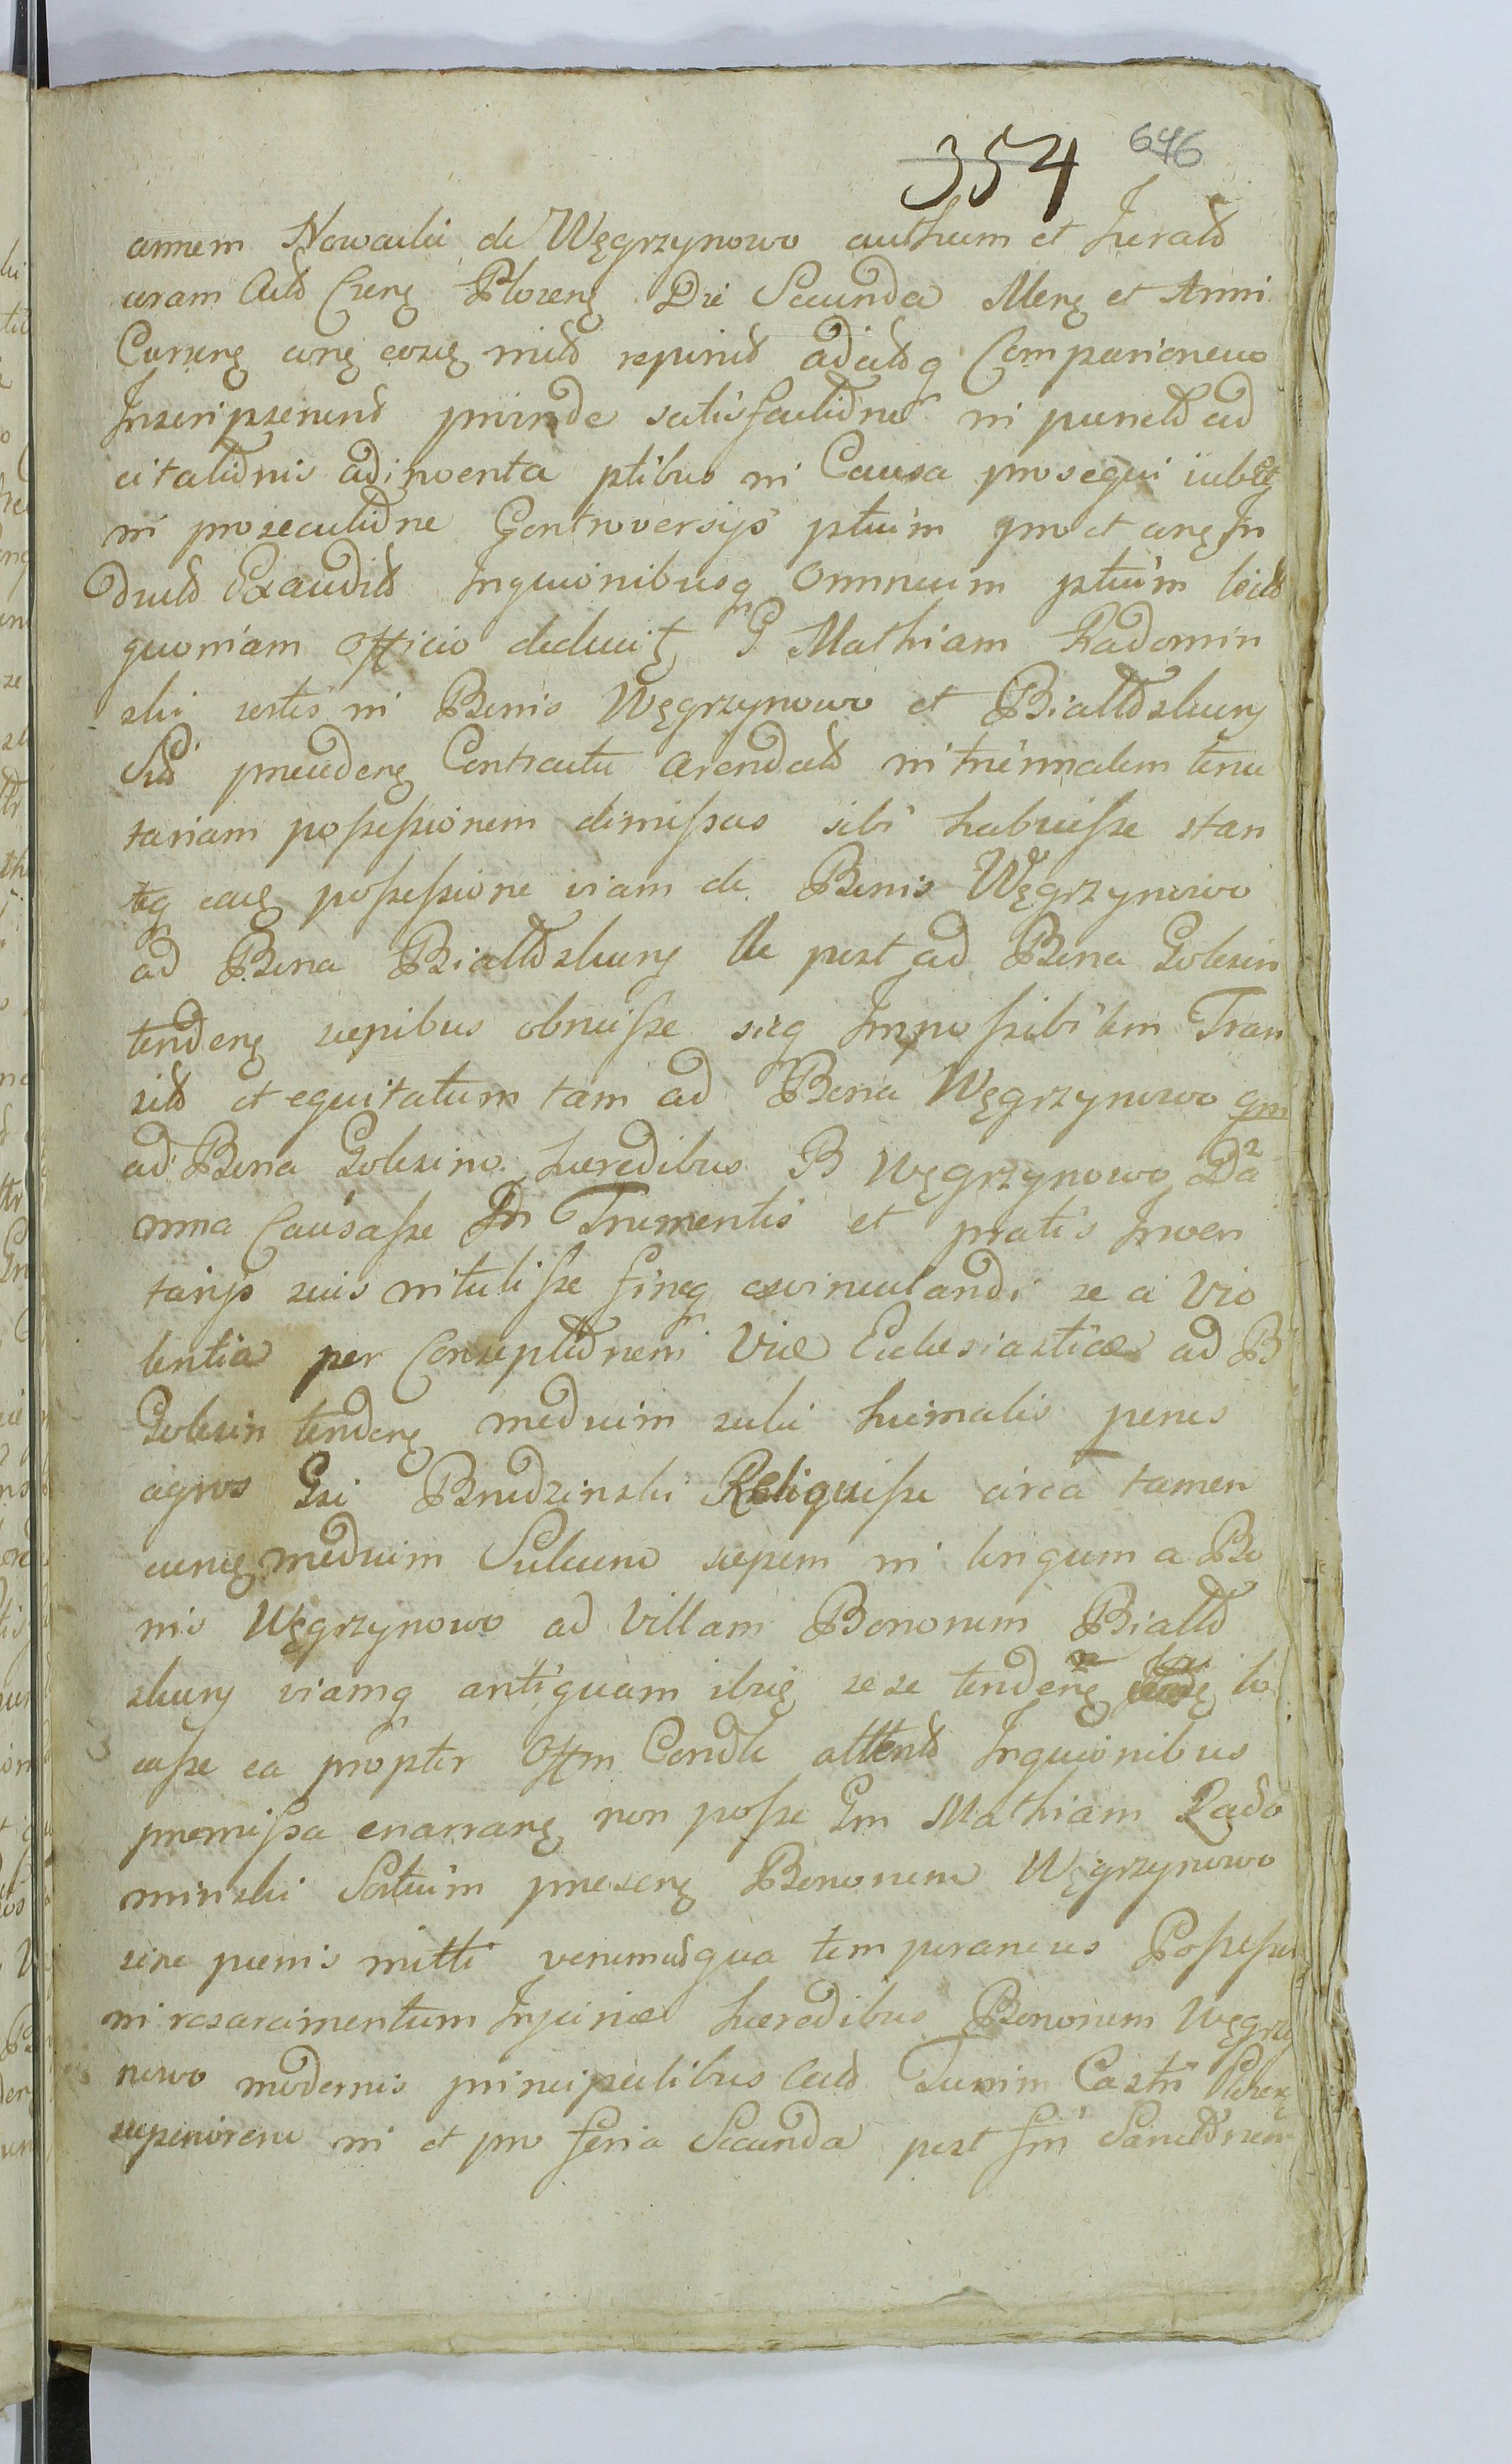 354 646
annem Nowacki de Węgrzynowo authum et Jurató
coram Actó Cseng Plozens Die Secunda Mens et Anni
Currens
Inscripserunt proinde satisfactióne in punctó ad
citatiónis adinventa ptibus in Causa prosequi iubet
in prosecutióne Controversijs ptium pro et
Exauditó Inquionibusq Omnium ptium
quoniam Officio deducit G Mathiam Radomin
ski sortis in Bonis Węgrzynowo et Biallóskury
Contractu arendató in triennalem tenu
tariam possessionem dimissas sibi habuisse stan
teq possessione viam de Bonis Węgrzynowo
ad Bona Biallóskury ac post ad Bona Golesin
tendens sepibus obruisse sicq Impossibilem Tran
sitó et equitatum tam ad Bona Węgrzynowo qm
ad Bona Golesino hæredibus B Węgrzynowo Da
mna Causasse In Frumentis et pratis Inven
tarijs suis intulisse sineq evinculandi se a Vio
lentia per Conseptiónem Viæ Ecclesiasticæ ad B
Golesin tendens medium sulci hiemalis penes
agros Gsi Brudzinski Reliquisse circa tamen
medium Sulcum sepem in longum a Bo
nis Węgrzynowo ad Villam Bonorum Bialló
skury viamq antiquam sese tendens lo
casse ea propter Offm Condle attentó Inquionibus
premissa enarrans non posse Gm Mathiam Rado
minski Bonorum Węgrzynowo
sine pænis mitti verum usqua temporaneus Possessor
in resarcimentum Injuriæ hæredibus Bonorum Węgrzy
nowo modernis principalibus Turrim Castri
superiorem in et pro feria Secunda post fm Sanctórum